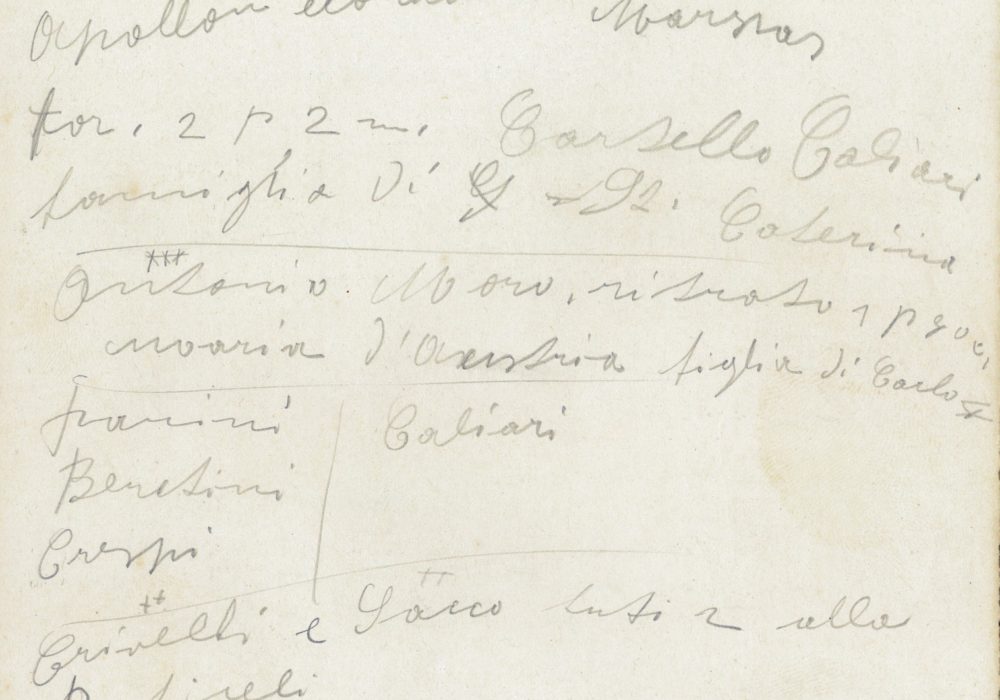 Apollon Marsyas
for. 2 p 2 m. Carsello Caliari
famiglia di 92. Caterina
Antonio Moro, ritrato, 1 p 90 c.
Maria d'Austria figlia di Carlo V
panini Caliari
Beretini
Crespi
Crivelli e Sacco tuti 2 alla
p